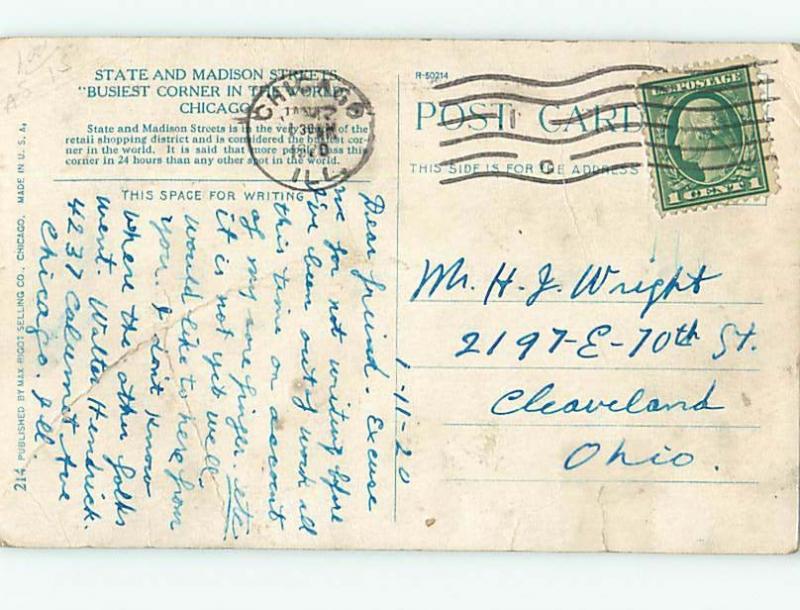 STATE AND MADISON STREETS
"BUSIEST CORNER IN THE WORLD"
CHICAGO
State and Madison Streets is in the very heart of the
retail shopping district and is considered the busiest cor-
ner in the world. It is said that more people pass this
corner in 24 hours than any other spot in the world.
THIS SPACE FOR WRITING
R-50214
POST CARD
THIS SIDE IS FOR THE ADDRESS
CHICAGO
ILL.
U.S. POSTAGE
1 CENT 1
1-11-20
Dear friend. Excuse
me for not writing before
I've been out of work all
this time on account
of my sore finger. etc
it is not yet well.
Would like to here from
you. I dont know
where the other folks
went. Walter Hendrick.
4237 Calumet Ave
Chicago. Ill
Mr. H. J. Wright
2197-E-70th St.
Cleaveland
Ohio.
214 PUBLISHED BY MAX RIGOT SELLING CO., CHICAGO, MADE IN U. S. A.